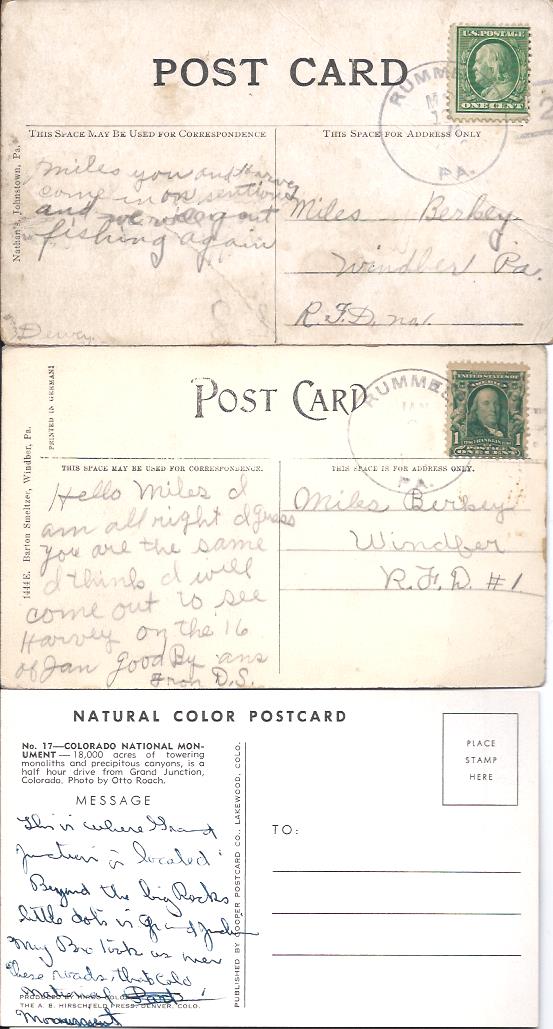 POST CARD
U.S. POSTAGE
ONE CENT
RUMMEL
PA.
THIS SPACE MAY BE USED FOR CORRESPONDENCE
THIS SPACE FOR ADDRESS ONLY
Nathan's, Johnstown, Pa.
Miles you and Harvey
come in on
and we will go out
fishing again
Dewey.
Miles Berkey
Windber Pa.
R.F.D. no 1.
POST CARD
PRINTED IN GERMANY
RUMMEL
JAN
PA.
UNITED STATES OF
AMERICA
1 1
POSTAGE
ONE CENT
THIS SPACE MAY BE USED FOR CORRESPONDENCE.
THIS SPACE IS FOR ADDRESS ONLY.
1444E. Barton Smeltzer, Windber, Pa.
Hello Miles I
am all right I guess
you are the same
I think I will
come out to see
Harvey on the 16
of Jan good By ans
From D.S.
Miles Berkey
Windber
R.F.D. #1
NATURAL COLOR POSTCARD
No. 17—COLORADO NATIONAL MON-
UMENT — 18,000 acres of towering
monoliths and precipitous canyons, is a
half hour drive from Grand Junction,
Colorado. Photo by Otto Roach.
MESSAGE
PLACE
STAMP
HERE
TO:
PUBLISHED BY COOPER POSTCARD CO., LAKEWOOD, COLO.
This is where Grand
Junction is located
Beyond the big Rocks
little dots is Grand Junction
My Bro took us over
these roads, that Colo
National Park
Monument
THE A. B. HIRSCHFELD PRESS, DENVER, COLO.